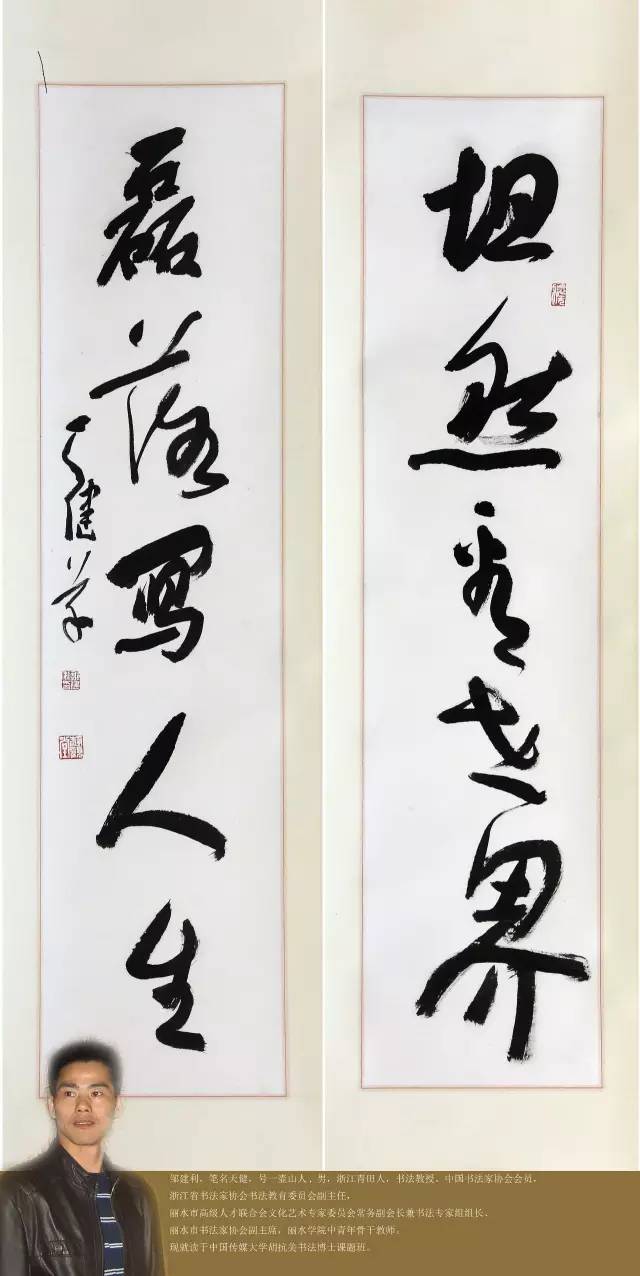 坦然看世界
磊落写人生
天健草
邹建利，笔名天健，号一壶山人，男，浙江青田人，书法教授。中国书法家协会会员，
浙江省书法家协会书法教育委员会副主任，
丽水市高级人才联合会文化艺术专家委员会常务副会长兼书法专家组组长、
丽水市书法家协会副主席，丽水学院中青年骨干教师。
现就读于中国传媒大学胡抗美书法博士课题班。